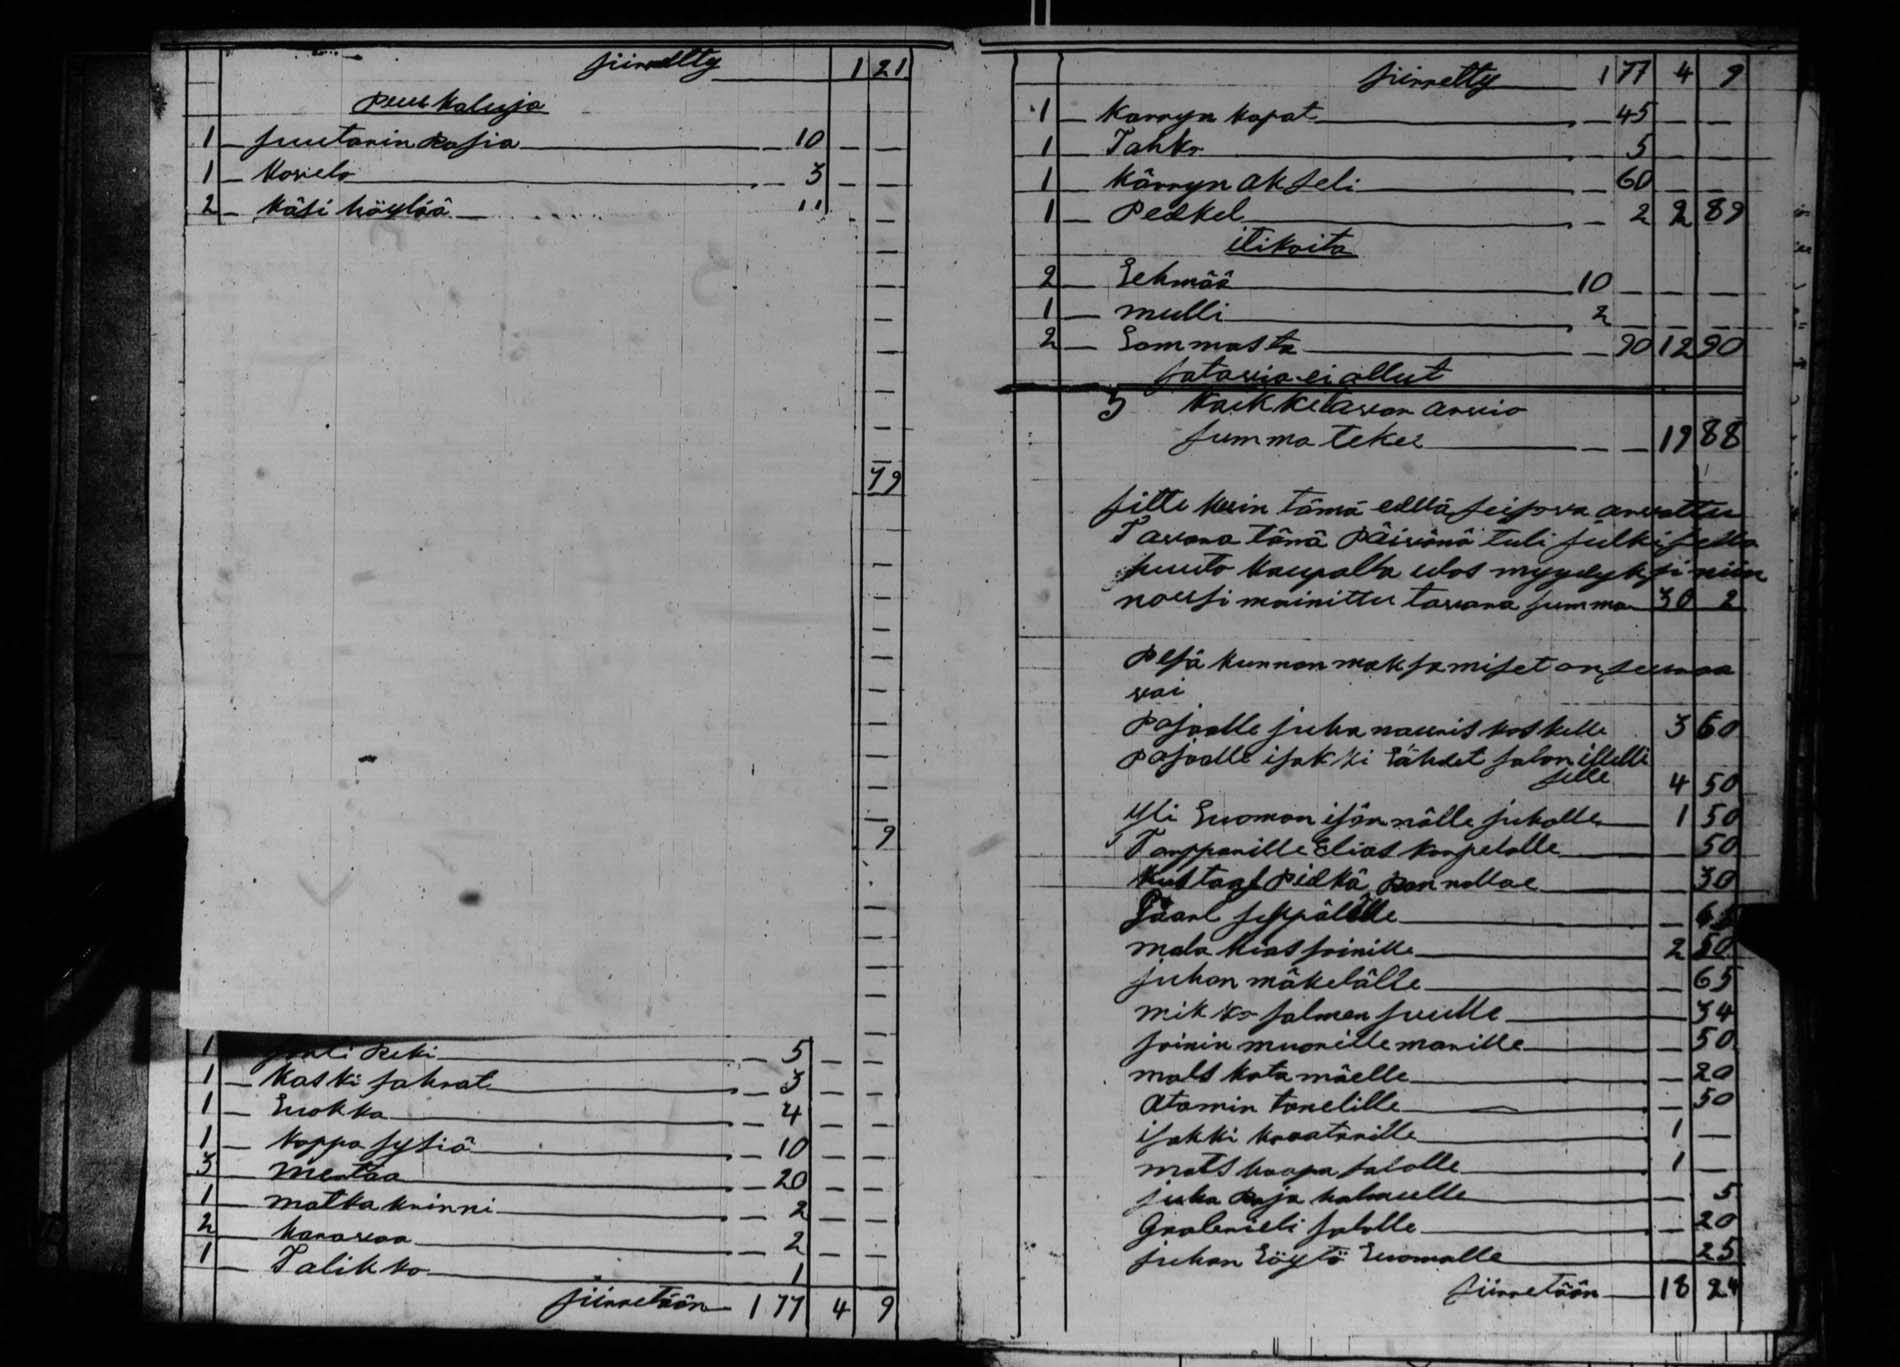 siirretty 1 21
puu kaluja
1 suutarin rasia 10
1 kovelo 3
2 käsi höylää 11
79
9
1 reki 5
1 kaski sahrat 3
1 Luokka 4
1 koppa sysiä 10
3 20
1 matka krinni 2
2 haravaa 2
1 Talikko 1
siirretään 1 77 4 9
siirretty 1 77 4 9
1 karryn kapat 45
1 Tahko 5
1 kärryn akseli 60
1 Peskel 2 2 89
itikoita
2 Lehmää 10
1 mulli 2
2 Lammasta 90 12 90
satavia ei ollut
kaikki tavar arvio
summa tekee 19 88
sitte kuin tämä edellä seisova arvattu
Tavara tänä Päivänä tuli julkisella
huuto kaupalla ulos myydyksi niin
nousi mainittu tavara summa 30 2
Pesä kunnan maksamiset on seuraa
vai
Pojalle juha nauris koskelle 3 60
Pojalle isakki Lähdet salon illelli
selle 4 50
Yli Luoman isännälle juhalle 1 50
Tamppanille Elias kanpelolle 50
Kustaa Pitkä Pannallae 30
seppälälle 65
soinille 2 50
juhan mäkelälle 65
mikko salmen suulle 34
soinin muorille marille 50
mats kata mäelle 20
Atamin tanelille 50
isakki kraatarille 1
mats haapa salolle 1
juha Raja halmeelle 5
salolle 20
juhan Löytö Luomalle 25
siirretään 18 24